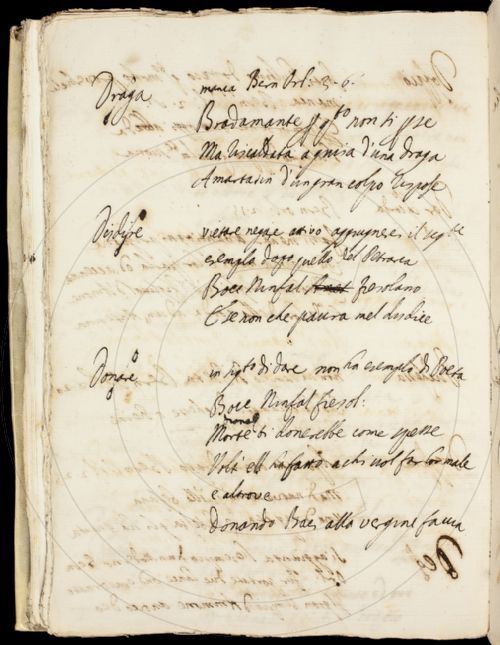 Draga manca Bern Orl: 2. 6.
Bradamante p qto non ti pse
Ma riscaldata a guisa d'una draga
A martasin d'un gran colpo rispose
Disdire vietare negare attivo aggiugnesi il segte
esempio dopo quello del Petrarca
Bocc Ninfal fiesolano
E se non che paura mel disdice
Donare in sigto di dare non ha esempio di Poeta
Bocc Ninfal fiesol:
Morte ti donerebbe come spesse
Volt ell ha fatto a chi vol far lor male
e altrove
Donando baci alla vergine faccia